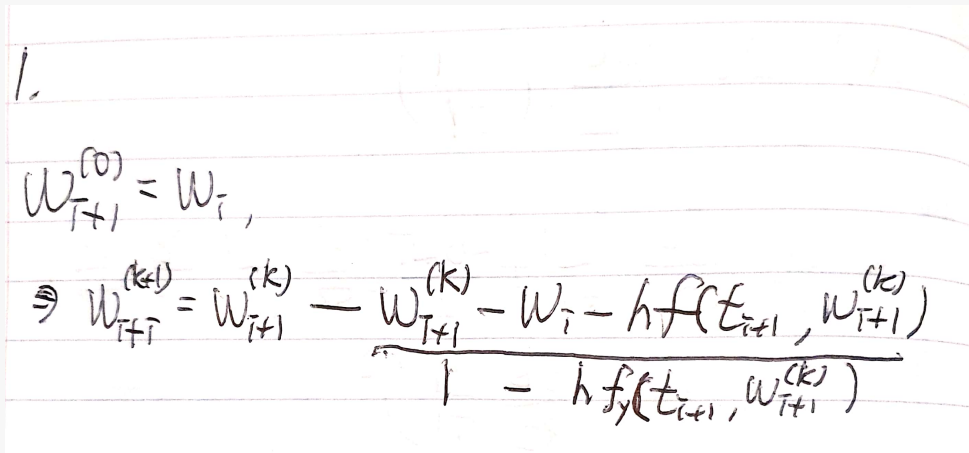 1.
w_{i+1}^{(0)} = w_i ,
⇒ w_{i+1}^{(k+1)} = w_{i+1}^{(k)} - \frac{w_{i+1}^{(k)} - w_i - hf(t_{i+1}, w_{i+1}^{(k)})}{1 - hf_y(t_{i+1}, w_{i+1}^{(k)})}